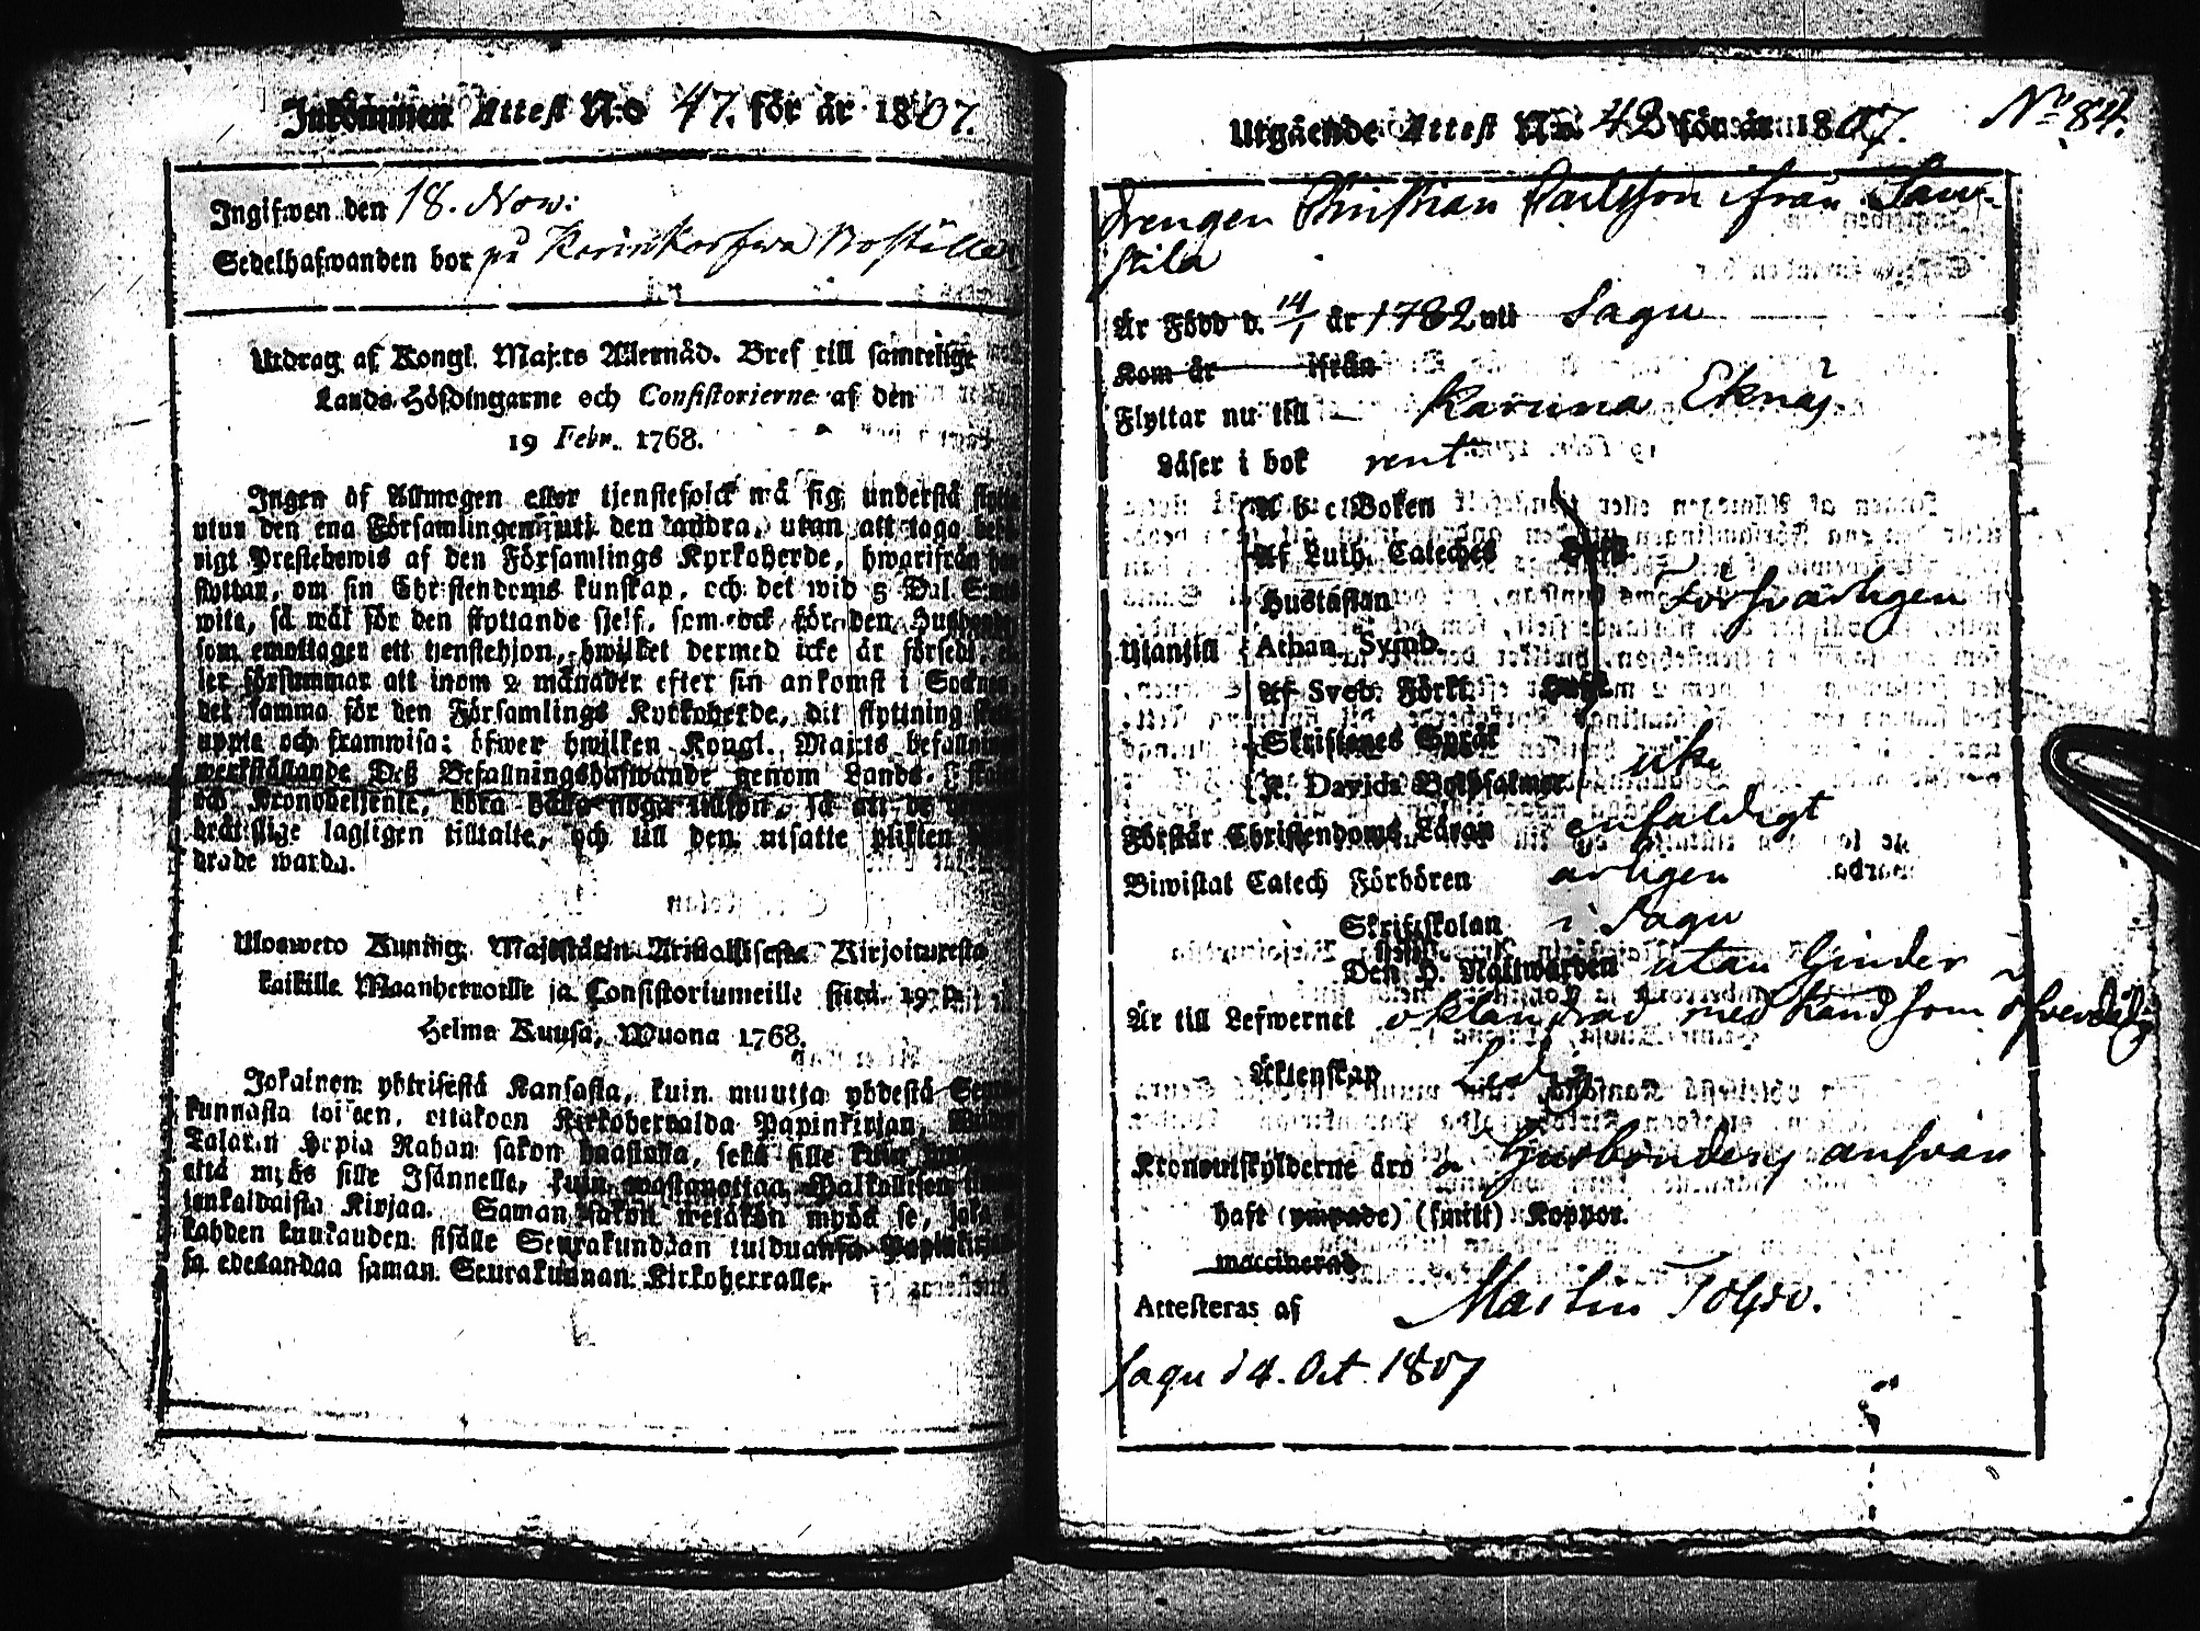 Inkommen Attest N:o 47. för år 1807.
Ingifwen den 18. Nov:
Sedelhafwanden bor på
Utdrag af Kongl. Maj:ts Allernåd. Bref till samtelige
Lands-Höfdingarne och Consistorierne af den
19 Febr. 1768.
Ingen af Allmogen eller tjenstefolck må sig understå
utur den ena Församlingen uti den andra, utan att taga
rigt Prestebewis af den Församlings Kyrkoherde, hwarifrån
flyttar, om sin Christendoms kunskap, och det wid 5 Dal. S:mt
wite, så wäl för den flyttande sjelf, som ock för den
som emottager ett tjenstehjon, hwilket dermed icke är försedt,
ler försummar att inom 2 månader efter sin ankomst i Socknen
det samma för den Församlings Kyrkoherde, dit flyttning
uppte och framwisa: öfwer hwilken Kongl. Maj:ts befallning
werkställande Deß Befallningshafwande genom Lands-
och Kronobetjente, böra hålla noga tillsyn, så att de
lagligen tilltalte, och till den utsatte plikten
drade warda.
Ulosweto Kuning. Majestätin Armollisesta Kirjoituresta
kaikille Maanherroille ja Consistoriumeille siitä 19
Helme Kuusa, Wuona 1768.
Jokainen yhteisestä Kansasta, kuin muutta yhdestä
kunnasta toiseen, ottakoon Kirkoherralda Papinkirjan,
Talarin Hopia Rahan sakon haastolla, sekä sille kuin
että myös sille Isännelle, kuin wastanottaa Palkollisen
tenkaldaista Kirjaa. Saman sakon wetäkön myös se, joka
kahden kuukauden sisälle Seurakundaan tulduansa
sa edesandaa saman Seurakunnan Kirkoherralle.
Utgående Attest N:o 42 för år 1807. No 84.
Drengen Christian Carlsson ifrån Saus-
tila
Är Född d. 14/1 år 1782 uti Sagu
Kom år ifrån
Flyttar nu till Karuna Eknäs
Läser i bok rent
A b c Boken
Af Luth. Cateches
Hustaflan Försvarligen
Utantill Athan. Symb.
Af Sveb. Förkl.
Skriftenes Språk
K. Davids Botpsalmer icke
Förstår Christendoms Läran enfaldigt
Biwistat Catech Förhören årligen
Skriftskolan i Sagu
Den H. Nattwarden utan hinder
Är till Lefwernet oklandrad med känd som
Äktenskap Ledig
Kronoutskylderne äro å Husbondens answar
haft (ympade) (smitt) Koppor.
waccinerad
Attesteras af Martin Tolpo.
Sagu d 4. Oct. 1807